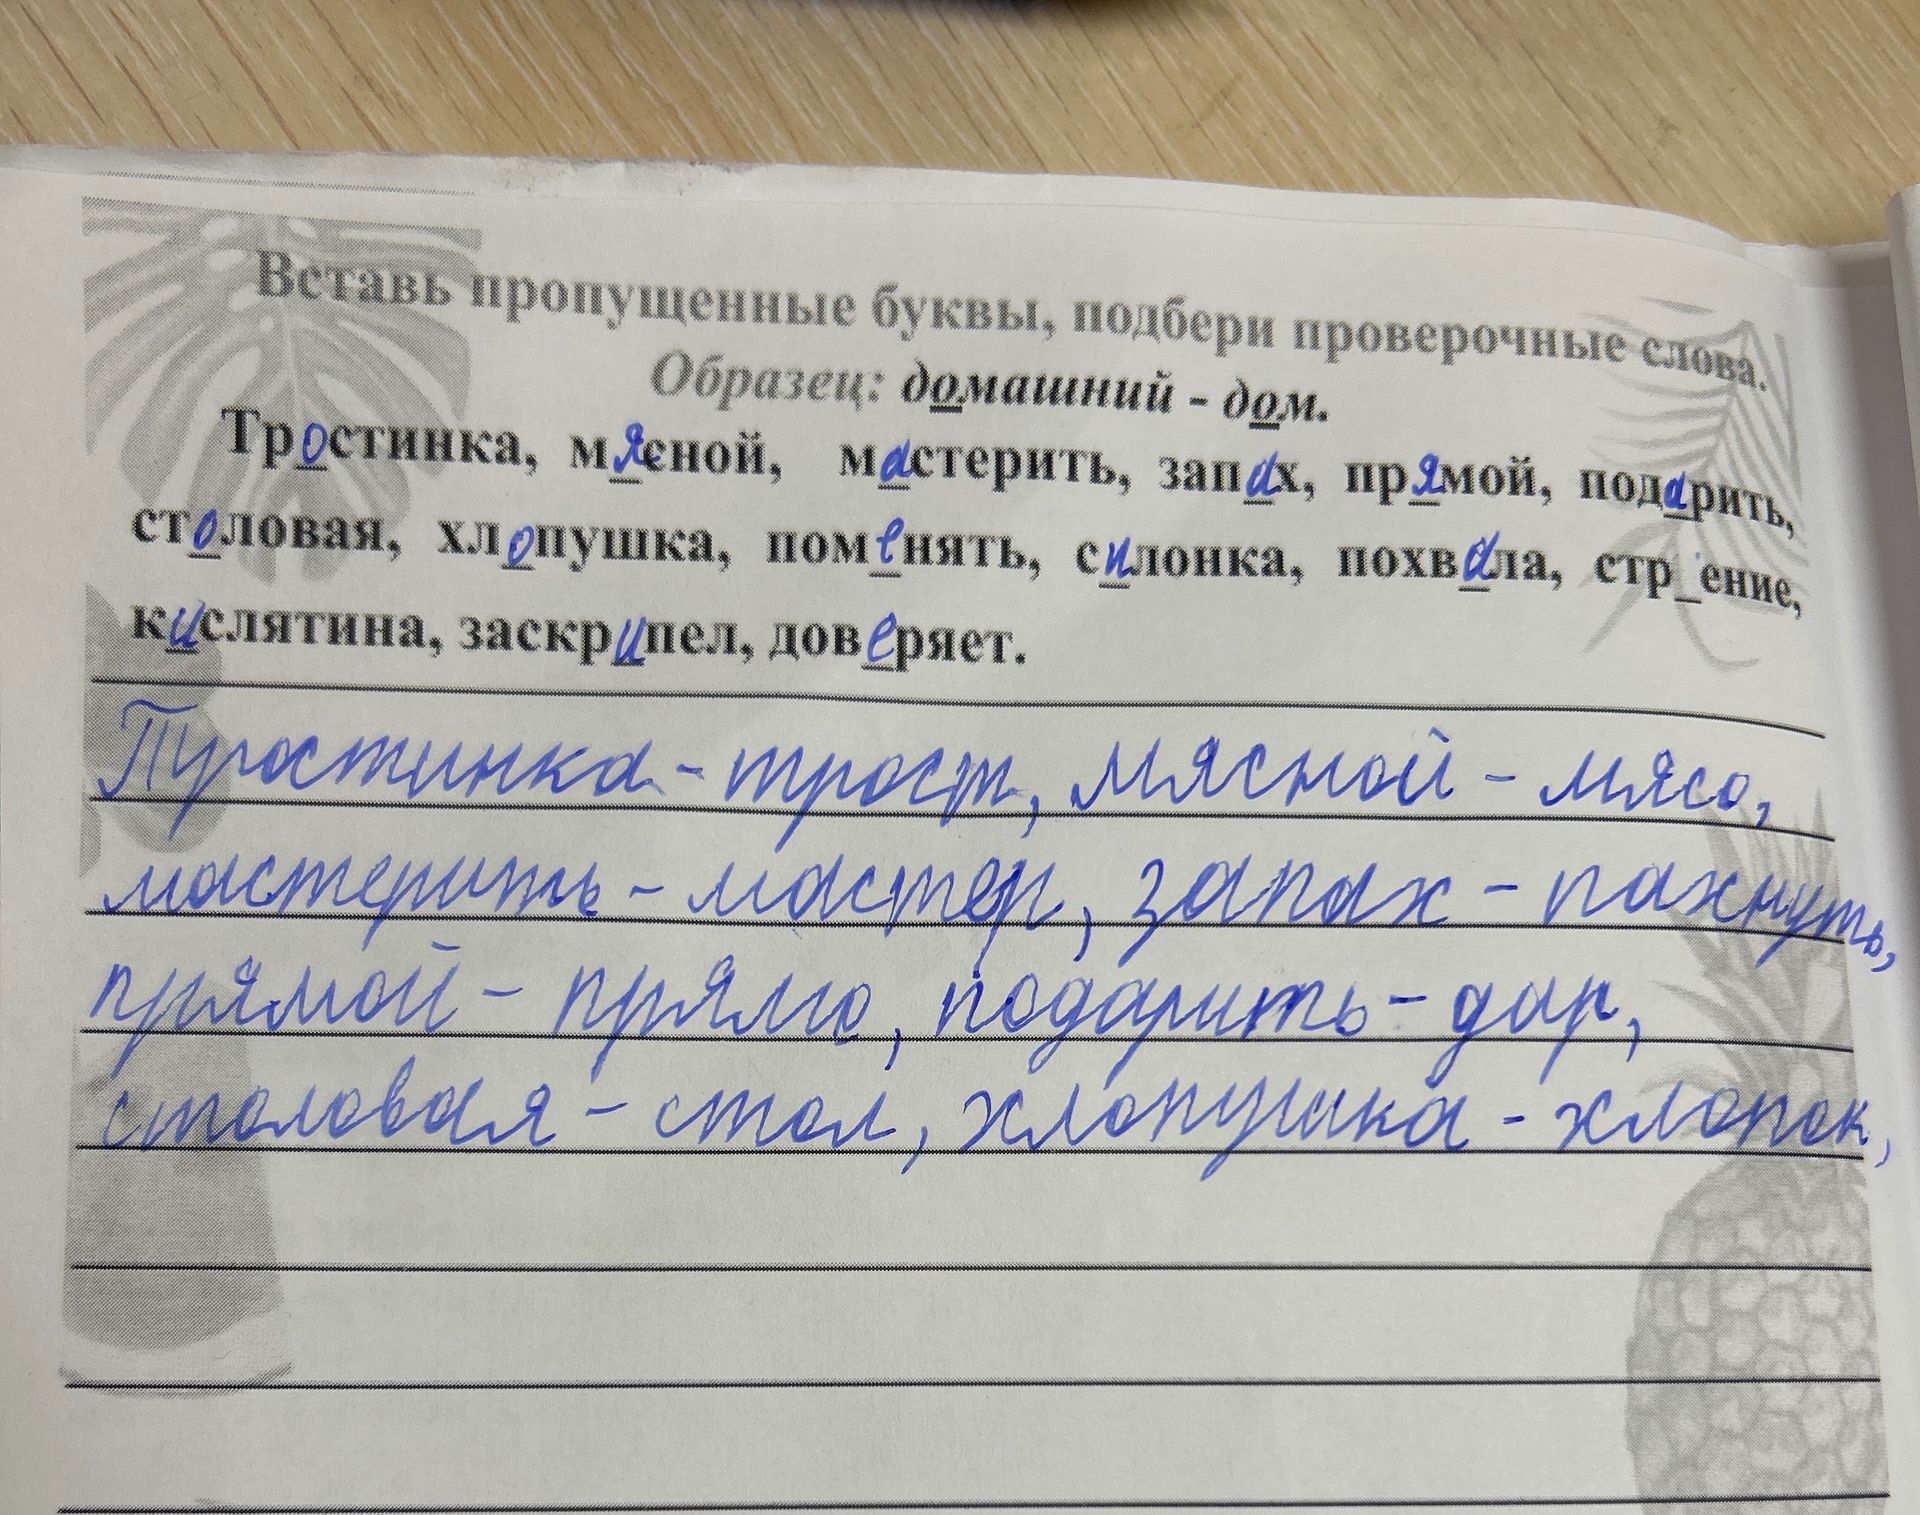 Вставь пропущенные буквы, подбери проверочные слова.
Образец: домашний - дом.
Тростинка, мясной, мастерить, запах, прямой, подарить,
столовая, хлопушка, поменять, силонка, похвала, стр_ение,
кислятина, заскрипел, доверяет.
Тростинка - трост, мясной - мясо,
мастерить - мастер, запах - пахнуть,
прямой - прямо, подарить - дар,
столовая - стол, хлопушка - хлопок,